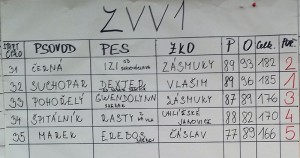 ZVV1
START. ČÍSLO PSOVOD PES ZKO P O Celk. POŘ.
31 ČERNÁ IZI ZÁSMUKY 89 93 182 2
32 SUCHOPÁR DEXTER VLAŠIM 89 96 185 1
33 POHOŘELÝ GWENDOLYNN ZÁSMUKY 87 89 176 3
34 ŠPITÁLNÍK RASTY UHLÍŘSKÉ JANOVICE 88 82 170 4
35 MAREK EREDOS ČÁSLAV 77 89 166 5